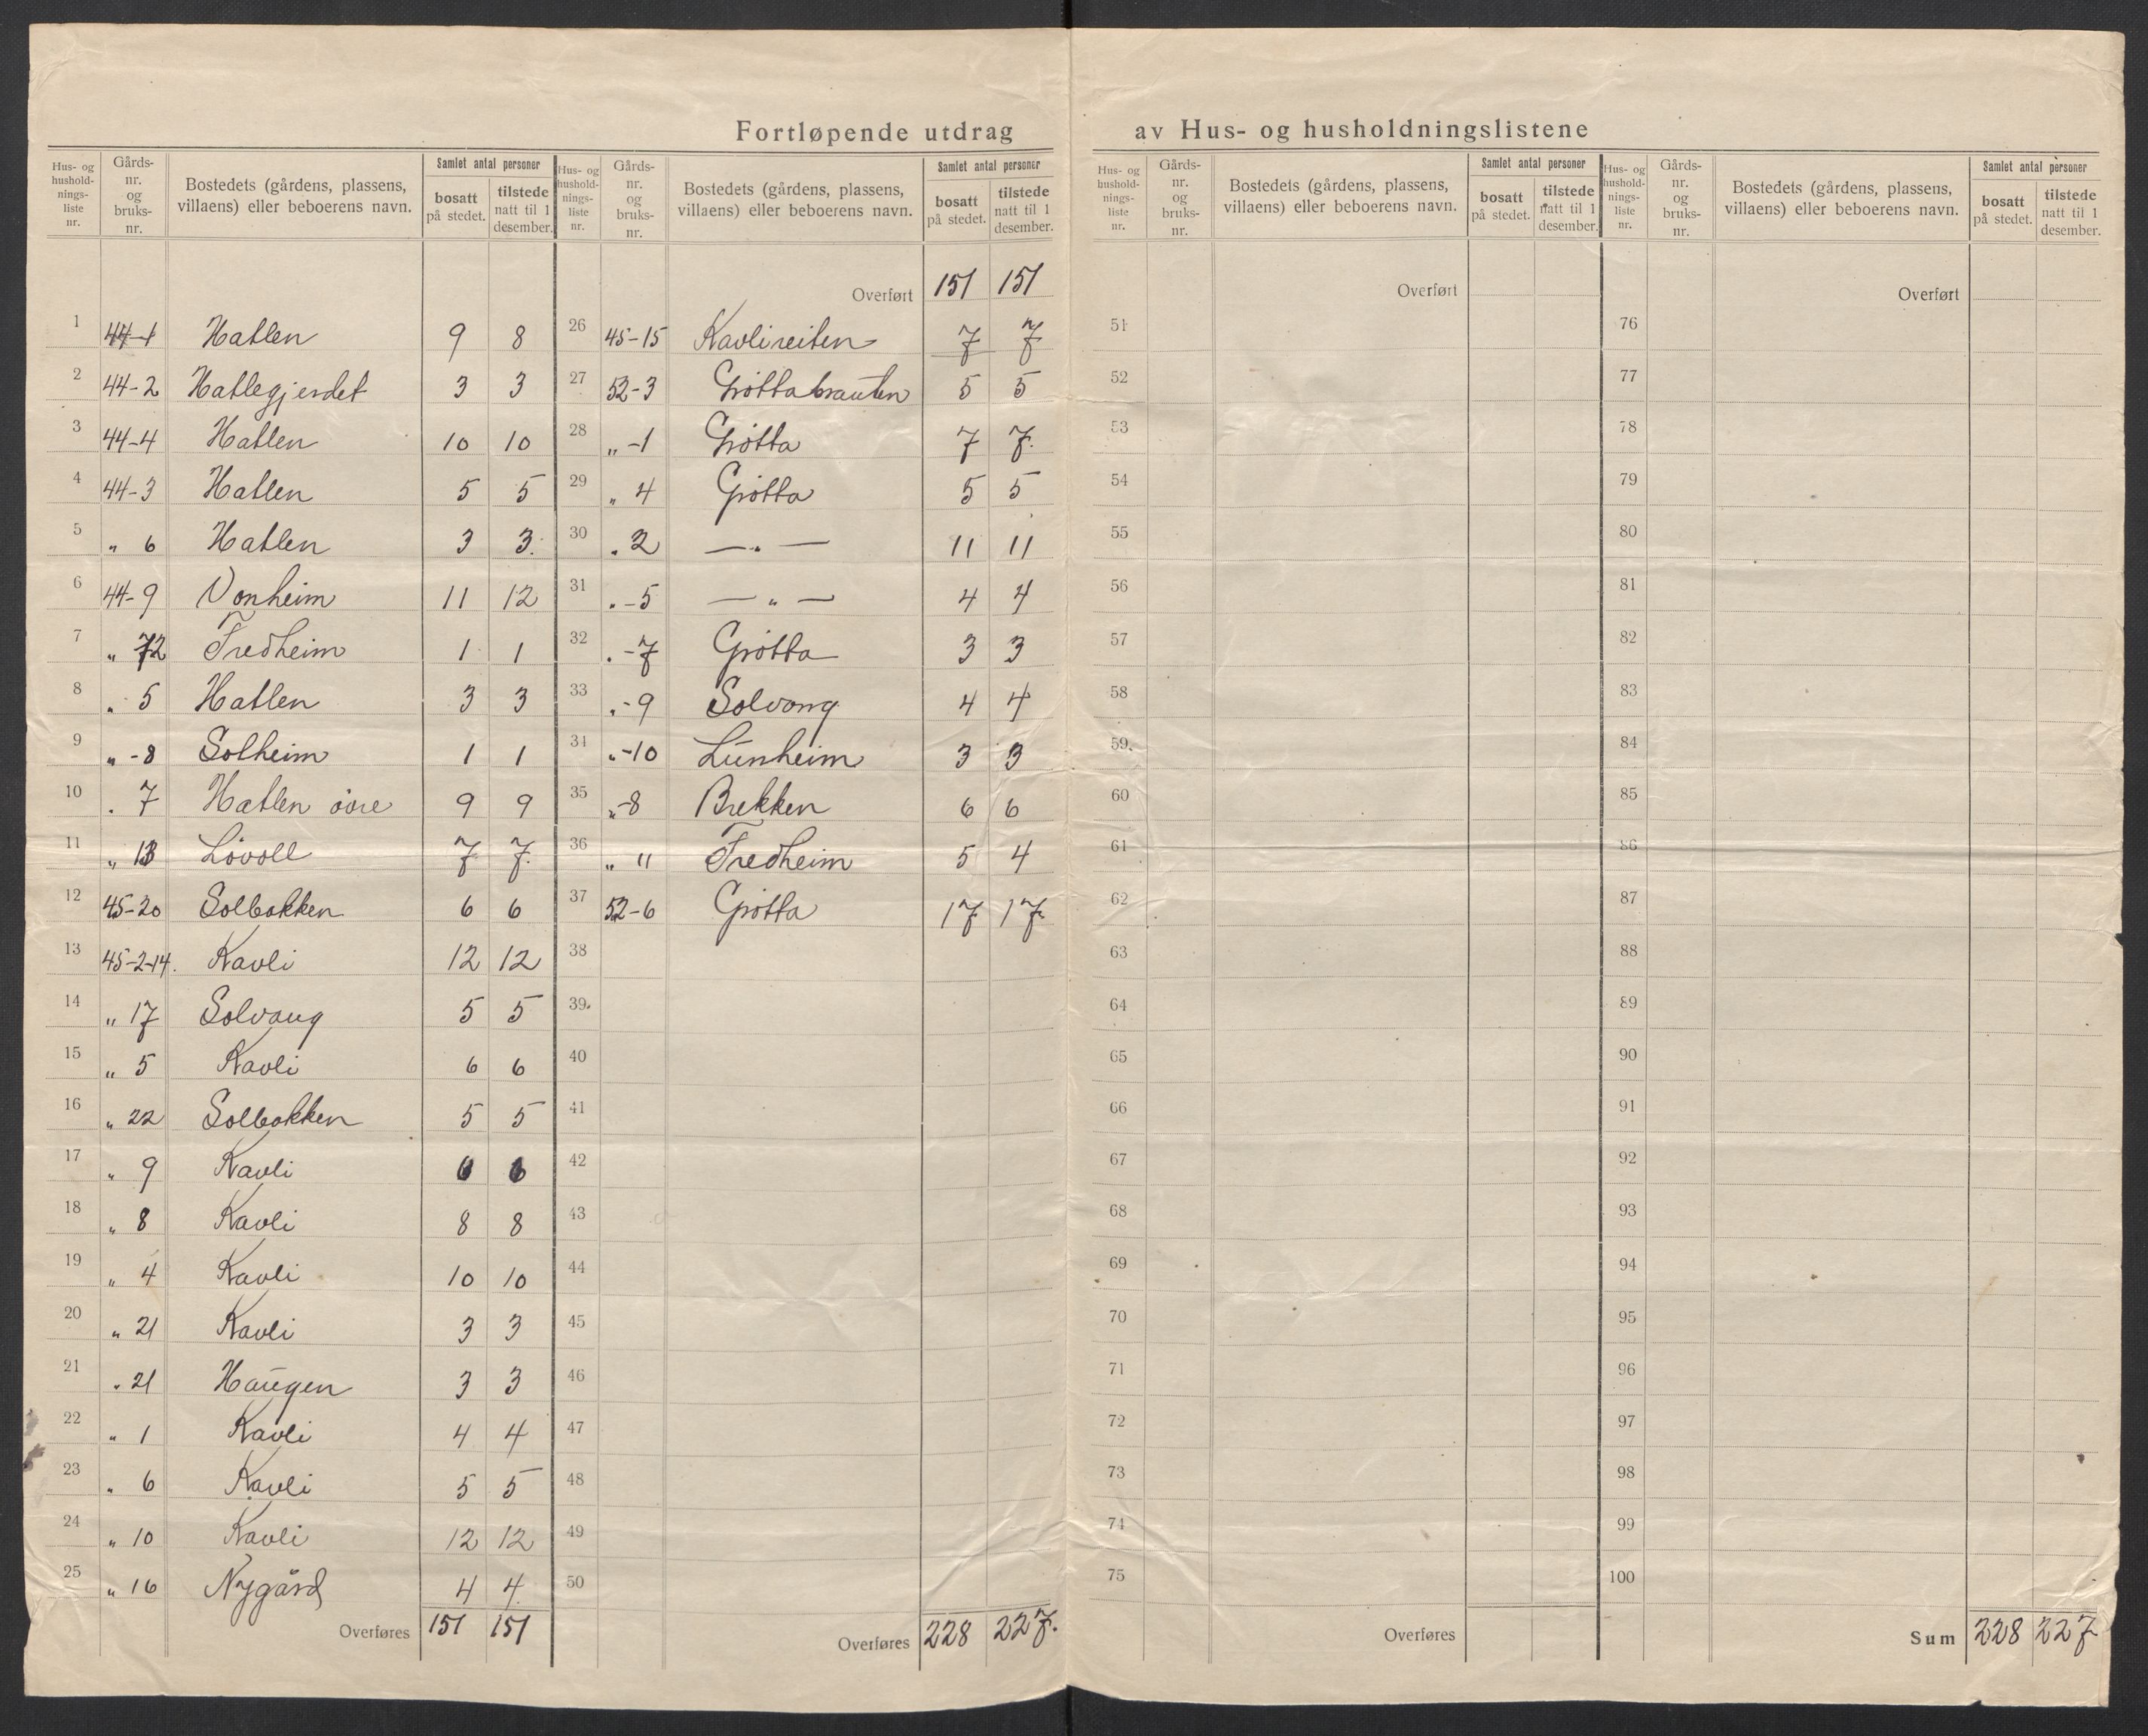 Fortløpende utdrag av Hus- og husholdningslistene
Hus- og hushold- nings- liste nr. | Gårds- nr. og bruks- nr. | Bostedets (gårdens, plassens, villaens) eller beboerens navn. | Samlet antal personer | bosatt på stedet. | tilstede natt til 1 desember.
1 44-1 Hatlen 9 8
2 44-2 Hatlegjerdet 3 3
3 44-4 Hatlen 10 10
4 44-3 Hatlen 5 5
5 " 6 Hatlen 3 3.
6 44-9 Vonheim 11 12
7 " 72 Fredheim 1 1
8 " 5 Hatlen 3 3
9 " -8 Solheim 1 1
10 " 7 Hatlen övre 9 9
11 " 13 Lövoll 7 7.
12 45-20 Solbakken 6 6
13 45-2-14. Kavli 12 12
14 " 17 Solvang 5 5
15 " 5 Kavli 6 6
16 " 22 Solbakken 5 5
17 " 9 Kavli 6 6
18 " 8 Kavli 8 8
19 " 4 Kavli 10 10
20 " 21 Kavli 3 3
21 " 21 Haugen 3 3
22 " 1 Kavli 4 4
23 " 6 Kavli 5 5
24 " 10 Kavli 12 12
25 " 16 Nygård 4 4.
Overføres 151 151
Hus- og hushold- nings- liste nr. | Gårds- nr. og bruks- nr. | Bostedets (gårdens, plassens, villaens) eller beboerens navn. | Samlet antal personer | bosatt på stedet. | tilstede natt til 1 desember.
Overført 151 151
26 45-15 Kavlireiten 7 7
27 52-3 Gröttabrauten 5 5
28 " -1 Grötta 7 7.
29 " 4 Grötta 5 5
30 " 2 — " — 11 11
31 " -5 — " — 4 4
32 " -7 Grötta 3 3
33 " -9 Solvang 4 4
34 " -10 Lunheim 3 3
35 " -8 Brekken 6 6
36 " 11 Fredheim 5 4
37 52-6 Grötta 17 17.
38
39
40
41
42
43
44
45
46
47
48
49
50
Overføres 228 227.
Hus- og hushold- nings- liste nr. | Gårds- nr. og bruks- nr. | Bostedets (gårdens, plassens, villaens) eller beboerens navn. | Samlet antal personer | bosatt på stedet. | tilstede natt til 1 desember.
Overført
51
52
53
54
55
56
57
58
59
60
61
62
63
64
65
66
67
68
69
70
71
72
73
74
75
Overføres
Hus- og hushold- nings- liste nr. | Gårds- nr. og bruks- nr. | Bostedets (gårdens, plassens, villaens) eller beboerens navn. | Samlet antal personer | bosatt på stedet. | tilstede natt til 1 desember.
Overført
76
77
78
79
80
81
82
83
84
85
86
87
88
89
90
91
92
93
94
95
96
97
98
99
100
Sum 228 227